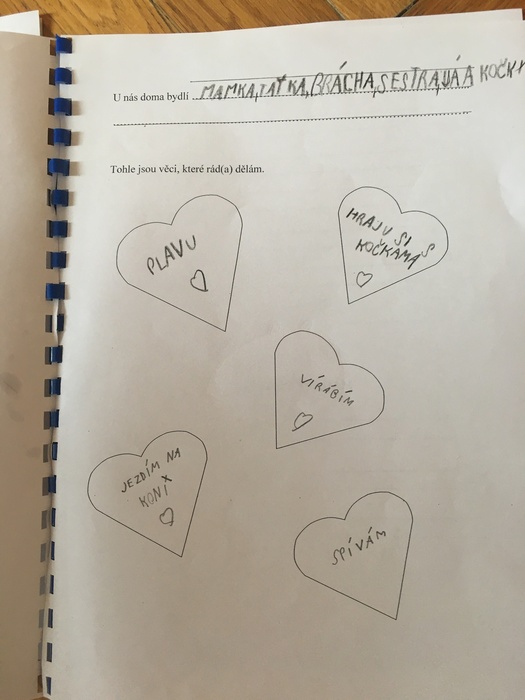 U nás doma bydlí MAMKA, TAŤKA, BRÁCHA, SESTRA, JÁ A KOČKY
Tohle jsou věci, které rád(a) dělám.
PLAVU
HRAJU SI S
KOČKAMA
VÍRÁBÍM
JEZDÍM NA
KONI
SPÍVÁM